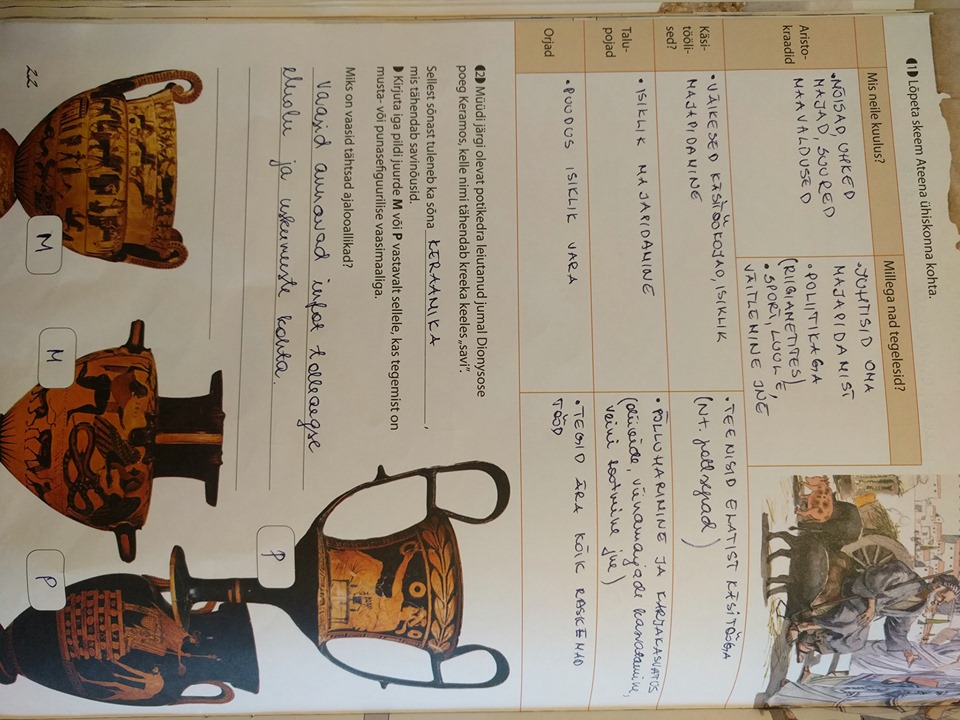 1 Lõpeta skeem Ateena ühiskonna kohta.
Mis neile kuulus?
Millega nad tegelesid?
Aristo-
kraadid
• NÕISAD, UHKED
MAJAD, SUURED
MAAVALDUSED
• JUHTISID OMA
MAJAPIDAMIST
• POLIITIKAGA
(RIIGIAMETITES)
• SPORT, LUULE,
VÄITLEMINE JNE
Käsi-
tööli-
sed?
• VÄIKESED KÄSITÖÖKOJAD, ISIKLIK
MAJAPIDAMINE
• TEENISID ELATIST KÄSITÖÖGA
(Nt. pottsepad)
Talu-
pojad
• ISIKLIK MAJAPIDAMINE
• PÕLLUHARIMINE JA KARJAKASVATUS
(oliivide, viinamarjade kasvatamine,
veini tootmine jne)
Orjad
• PUUDUS ISIKLIK VARA
• TEGID ÄRA KÕIK RASKEMAD
TÖÖD
2 Müüdi järgi olevat potikedra leiutanud jumal Dionysose
poeg Keramos, kelle nimi tähendab kreeka keeles „savi".
Sellest sõnast tuleneb ka sõna KERAAMIKA,
mis tähendab savinõusid.
Kirjuta iga pildi juurde M või P vastavalt sellele, kas tegemist on
musta- või punasefiguurilise vaasimaaliga.
Miks on vaasid tähtsad ajalooallikad?
Vaasid annavad infot tolleaegse
eluolu ja uskumuste kohta.
M
M
P
P
22